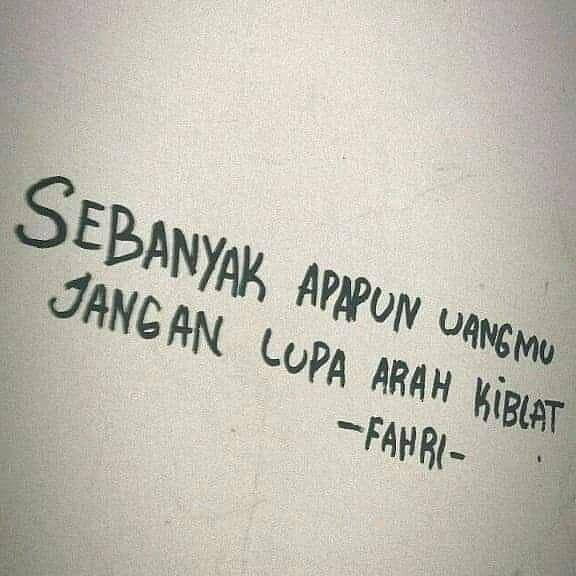 SEBANYAK APAPUN UANGMU
JANGAN LUPA ARAH KiBLAT
-FAHRI-